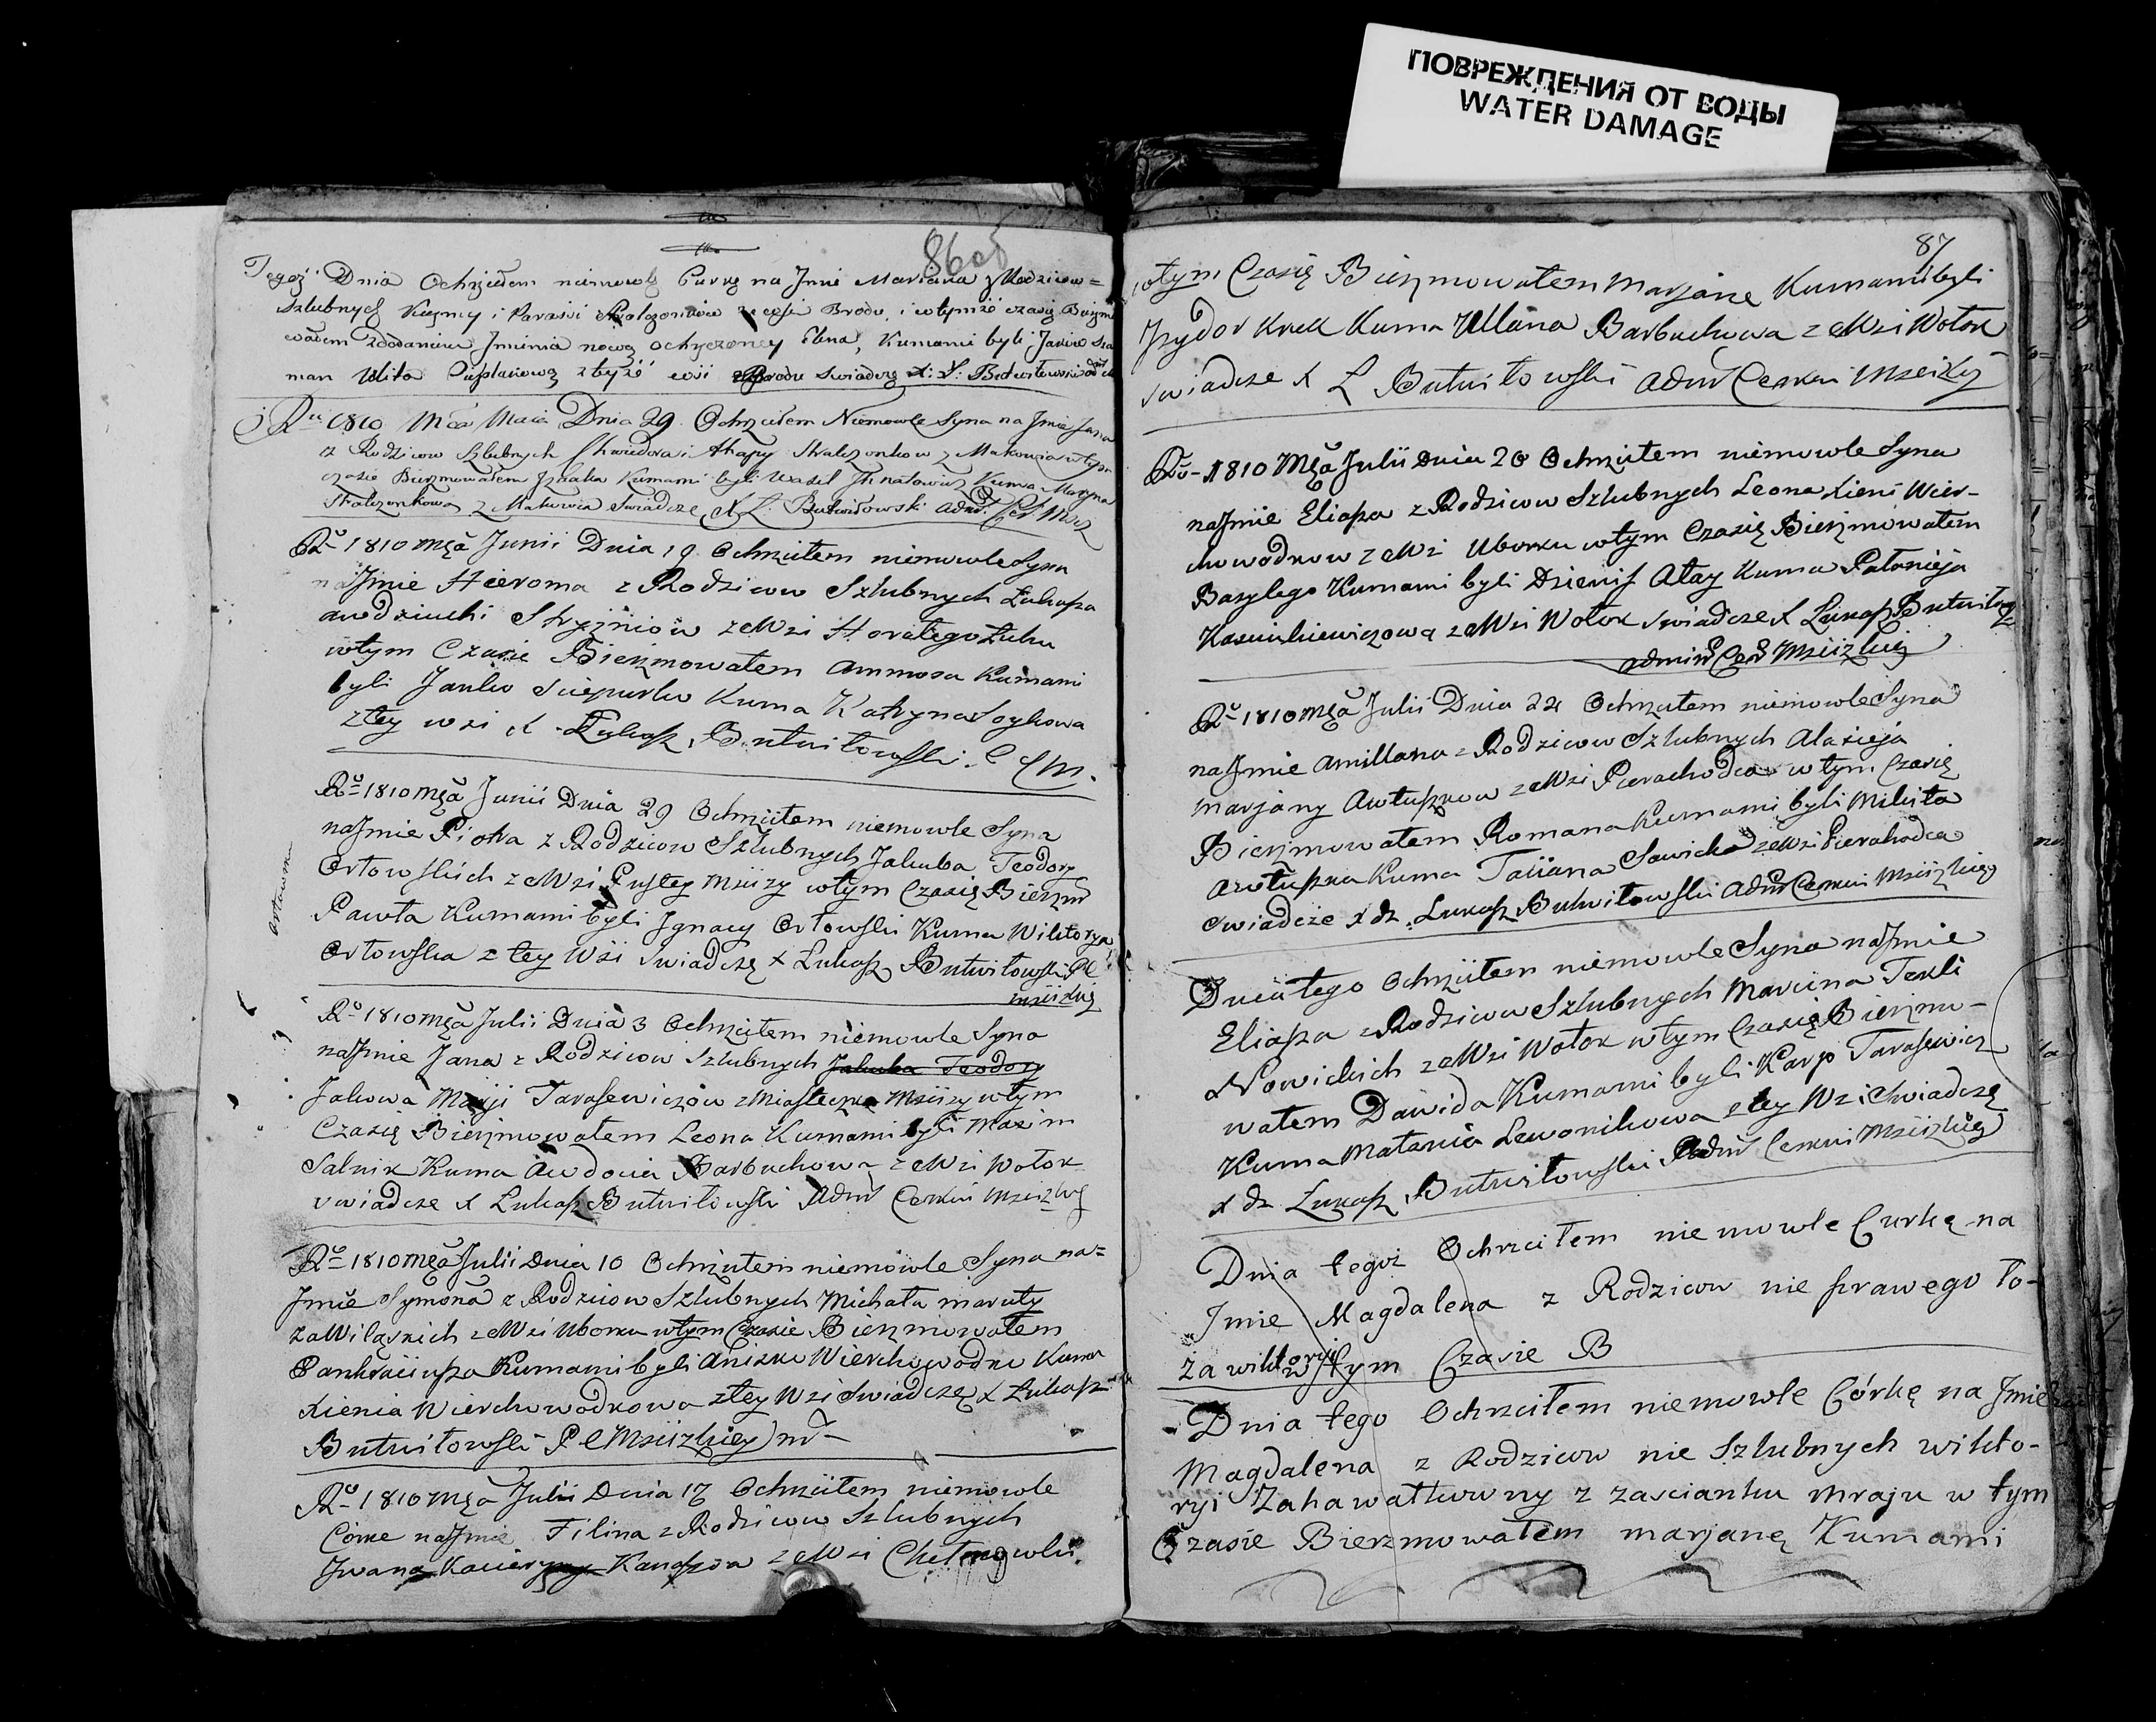 ПОВРЕЖДЕНИЯ ОТ ВОДЫ
WATER DAMAGE
86об
Tegoż Dnia Ochrzciłem niemowlę Curkę na Jmie Mariana z Rodziców
Szlubnych Kuzmy i Paraski ze wsi Brodu, i w tymże czasie Bierzmo
wałem z dodaniem Jmienia nowo ochrzczoney Elena, Kumami byli
man Ulita z teyże wsi Brodu Swiadczę X: Ł: Butwiłowski
Rũ 1810 Mca Maia Dnia 29. Ochrzciłem Niemowle Syna na Jmie
z Rodzicow Szlubnych Chwiedora i Ahapy Stralczonkow z Makowia w tym
czasie Bierzmowałem Kumami byli Wasil Jhnatowicz Kuma Maryna
Stralczonkowa z Makowia Swiadcze X Ł. Butwiłowski Adm. Cer. Msciz
Rũ 1810 Mcã Junii Dnia 19. Ochrzciłem niemowle Syna
na Jmie Hieroma z Rodzicow Szlubnych Łukasza
awdziuchi Stryżniow ze Wsi Horełego Łuhu
w tym Czasie Bierzmowałem Ammosa Kumami
byli Janko Kuma Katryna
z tey wsi X Łukasz Butwiłowski. C M.
Rũ 1810 Mcã Junii Dnia 29 Ochrzciłem niemowle Syna
na Jmie Piotra z Rodzicow Szlubnych Jakuba Teodory
Orłowskich ze Wsi Pustey Msciży w tym Czasię Bierzm
Pawła Kumami byli Jgnacy Orłowski Kuma Wiktorya
Orłowska z tey Wsi Swiadczę X Łukasz Butwiłowski P C
Mscizkiey
Rũ 1810 Mcã Julii Dnia 3 Ochrzciłem niemowle Syna
na Jmie Jana z Rodzicow Szlubnych Jakuba Teodory
Jakowa Maryi Tarasewiczow z Miasteczka Msciży w tym
Czasię Bierzmowałem Leona Kumami byli Maxim
Salnik Kuma Awdocia Barbuchowa ze Wsi Wołok
swiadcze X Łukasz Butwiłowski Adm Cerkwi Mscizkiey
Rũ 1810 Mcã Julii Dnia 10 Ochrzciłem niemowle Syna na=
Jmie Symona z Rodzicow Szlubnych Michała maruty
zawiląskich ze Wsi Uborku w tym Czasie Bierzmowałem
Pankraciusza Kumami byli Anisko Wierchowodko Kuma
Xienia Wierchowodkowa z tey Wsi Swiadczę X Łukasz
Butwiłowski P C Mscizkiey
Rũ 1810 Mcã Julii Dnia 17 Ochrzciłem niemowle
Corke na Jmie Filina z Rodzicow Szlubnych
Jwana Kacieryny ze Wsi
87
w tym Czasię Bierzmowałem Marjane Kumami byli
Jzydor Kuma Ullana Barbuchowa z e Wsi Wołok
swiadcze X Ł Butwiłowski Adm Cerkwi Mscizkiey
Rũ 1810 Mcã Julii Dnia 20 Ochrzciłem niemowle Syna
na Jmie Eliasza z Rodzicow Szlubnych Leona Xieni Wier-
chowodkow z e Wsi Uborku w tym Czasię Bierzmowałem
Bazylego Kumami byli Dzienis Ałay Kuma Pałanieja
Kasciukiewiczowa z e Wsi Wołok swiadcze X Łukasz Butwiłow
admin Cer Mscizkiey
Rũ 1810 Mcã Julii Dnia 22 Ochrzciłem niemowle Syna
na Jmie Amillana z Rodzicow Szlubnych Alaxieja
Marjany Awłuszkow z e Wsi Pierachodca w tym Czasię
Bierzmowałem Romana Kumami byli Mikita
Awłuszka Kuma Taciana Sawicka z e Wsi Pierahodca
swiadcze X dz. Łukasz Butwiłowski Adm Cerkwi Mscizkiey
Dnia tego Ochrzciłem niemowle Syna na Jmie
Eliasza z Rodzicow Szlubnych Marcina Tekli
Nowickich z e Wsi Wołok w tym Czasię Bierzmo-
wałem Dawida Kumami byli Karp Tarasewicz
Kuma Małania Lewonikowa z tey Wsi Swiadczę
X dz Łukasz Butwiłowski Adm Cerkwi Mscizkiey
Dnia tegoż Ochrzciłem niemowle Curkę na
Jmie Magdalena z Rodzicow nie prawego ło-
ża wiktoryi w tym Czasie B
Dnia tego Ochrzciłem niemowle Córkę na Jmie
Magdalena z Rodzicow nie Szlubnych wikto-
ryi Zahawałkowny z zascianku mraju w tym
Czasie Bierzmowałem marjanę Kumami